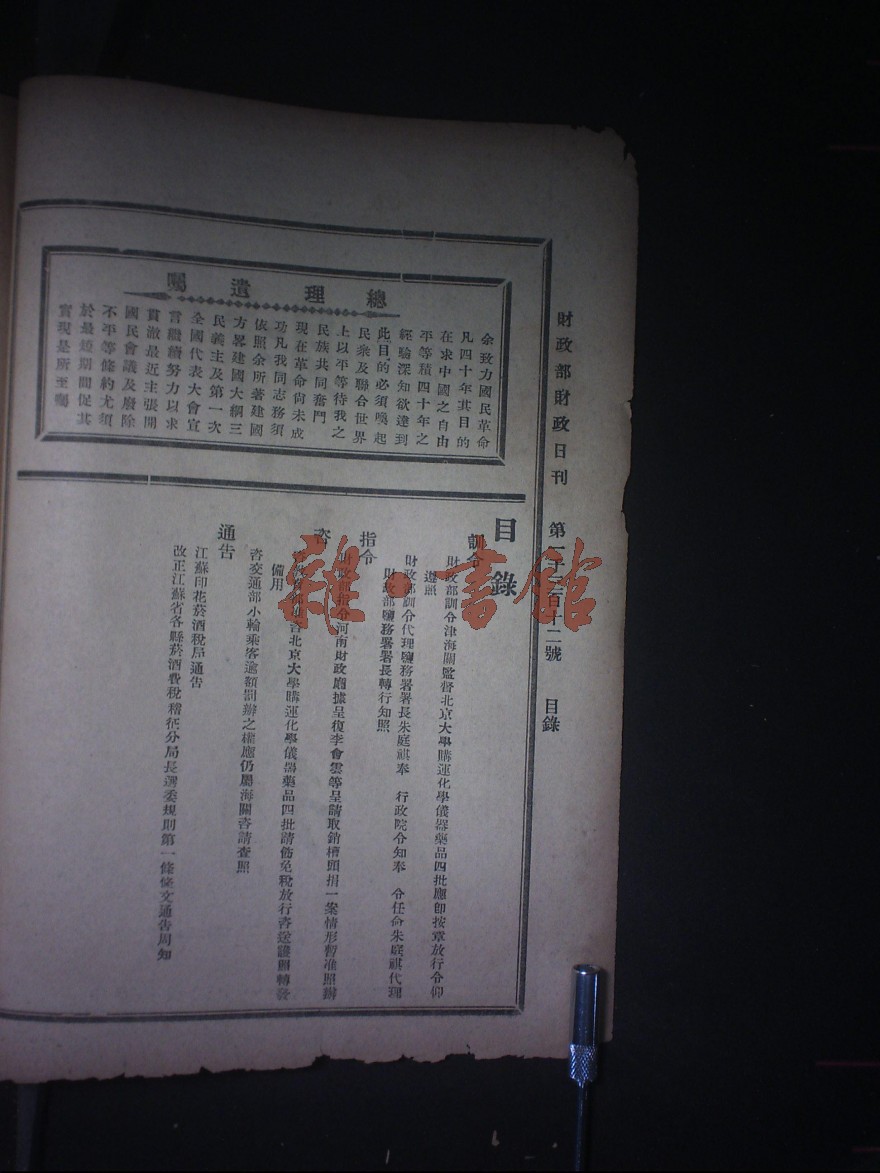 財政部財政日刊 第一千三百十二號 目錄
總理遺囑
余致力國民革命
凡四十年其目的
在求中國之自由
平等積四十年之
經驗深知欲達到
此目的必須喚起
民衆及聯合世界
上以平等待我之
民族共同奮鬥
現在革命尙未成
功凡我同志務須
依照余所著建國
方畧建國大綱三
民義主及第一次
全國代表大會宣
言繼續努力以求
貫澈最近主張開
國民會議及廢除
不平等條約尤須
於最短期間促其
實現是所至囑
目錄
訓令
財政部訓令津海關監督北京大學購運化學儀器藥品四批應卽按章放行令仰
遵照
財政部訓令代理鹽務署署長朱庭祺奉 行政院令知奉 令任命朱庭祺代理
財政部鹽務署署長轉行知照
指令
財政部指令河南財政廳據呈復李會雲等呈請取銷槽頭捐一案情形暫准照辦
咨
咨北京大學購運化學儀器藥品四批請飭免稅放行咨送護照轉發
備用
咨交通部小輪乘客逾額罰辦之權應仍屬海關咨請查照
通告
江蘇印花菸酒稅局通告
改正江蘇省各縣菸酒費稅稽征分局長選委規則第一條條文通告周知
雜·書館